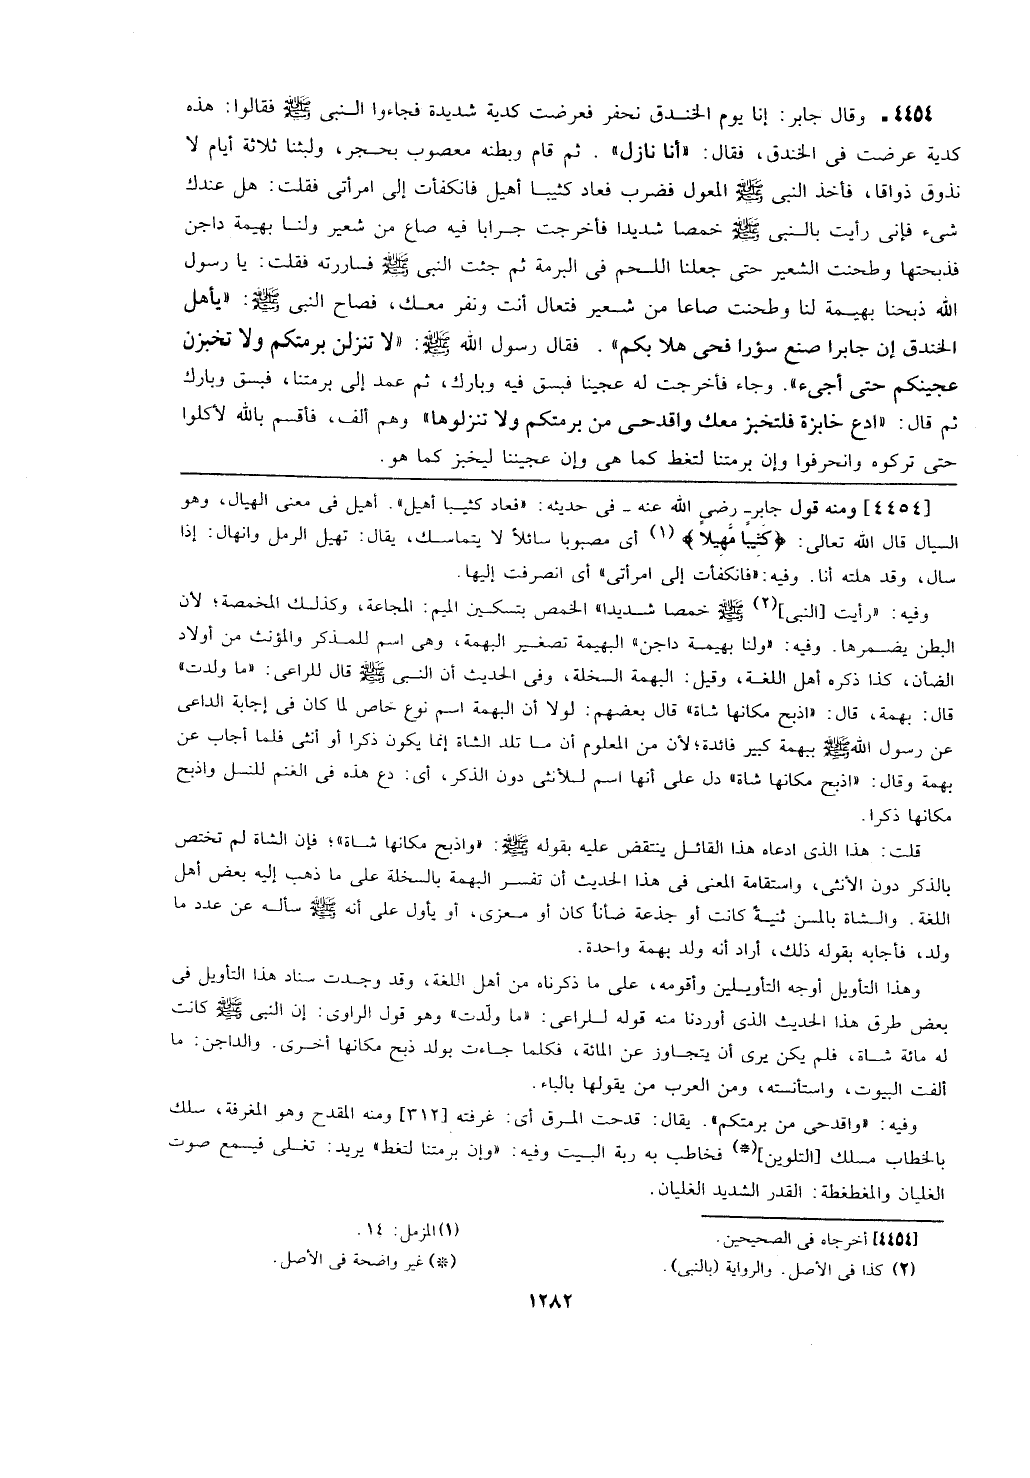 ٤٤٥٤. وقال جابر: إنا يوم الخندق نحفر فعرضت كدية شديدة فجاءوا النبى ﷺ فقالوا: هذه
كدية عرضت فى الخندق، فقال: «أنا نازل». ثم قام وبطنه معصوب بحجر، ولبثنا ثلاثة أيام لا
نذوق ذواقا، فأخذ النبى ﷺ المعول فضرب فعاد كثيبا أهيل فانكفأت إلى امرأتى فقلت: هل عندك
شىء فإنى رأيت بالنبى ﷺ خمصا شديدا فأخرجت جرابا فيه صاع من شعير ولنا بهيمة داجن
فذبحتها وطحنت الشعير حتى جعلنا اللحم فى البرمة ثم جئت النبى ﷺ فساررته فقلت: يا رسول
الله ذبحنا بهيمة لنا وطحنت صاعا من شعير فتعال أنت ونفر معك، فصاح النبى ﷺ: «يأهل
الخندق إن جابرا صنع سؤرا فحى هلا بكم». فقال رسول الله ﷺ: «لا تنزلن برمتكم ولا تخبزن
عجينكم حتى أجىء». وجاء فأخرجت له عجينا فبسق فيه وبارك، ثم عمد إلى برمتنا، فبسق وبارك
ثم قال: «ادع خابزة فلتخبز معك واقدحى من برمتكم ولا تنزلوها» وهم ألف، فأقسم بالله لأكلوا
حتى تركوه وانحرفوا وإن برمتنا لتغط كما هى وإن عجيننا ليخبز كما هو.
[٤٤٥٤] ومنه قول جابر ـ رضى الله عنه ـ فى حديثه: «فعاد كثيبا أهيل». أهيل فى معنى الهيال، وهو
السيال قال الله تعالى: ﴿كَثِيبًا مَّهِيلاً﴾ (١) أى مصبوبا سائلاً لا يتماسك، يقال: تهيل الرمل وانهال: إذا
سال، وقد هلته أنا. وفيه: «فانكفأت إلى امرأتى» أى انصرفت إليها.
وفيه: «رأيت [النبى](٢) ﷺ خمصا شديدا» الخمص بتسكين الميم: المجاعة، وكذلك المخمصة؛ لأن
البطن يضمرها. وفيه: «ولنا بهيمة داجن» البهيمة تصغير البهمة، وهى اسم للمذكر والمؤنث من أولاد
الضأن، كذا ذكره أهل اللغة، وقيل: البهمة السخلة، وفى الحديث أن النبى ﷺ قال للراعى: «ما ولدت»
قال: بهمة، قال: «اذبح مكانها شاة» قال بعضهم: لولا أن البهمة اسم نوع خاص لما كان فى إجابة الداعى
عن رسول الله ﷺ ببهمة كبير فائدة؛ لأن من المعلوم أن ما تلد الشاة إنما يكون ذكرا أو أنثى فلما أجاب عن
بهمة وقال: «اذبح مكانها شاة» دل على أنها اسم للأنثى دون الذكر، أى: دع هذه فى الغنم للنسل واذبح
مكانها ذكرا.
قلت: هذا الذى ادعاه هذا القائل ينتقض عليه بقوله ﷺ: «واذبح مكانها شاة»؛ فإن الشاة لم تختص
بالذكر دون الأنثى، واستقامة المعنى فى هذا الحديث أن تفسر البهمة بالسخلة على ما ذهب إليه بعض أهل
اللغة. والشاة بالمسن ثنيةً كانت أو جذعة ضأناً كان أو معزى، أو يأول على أنه ﷺ سأله عن عدد ما
ولد، فأجابه بقوله ذلك، أراد أنه ولد بهمة واحدة.
وهذا التأويل أوجه التأويلين وأقومه، على ما ذكرناه من أهل اللغة، وقد وجدت سناد هذا التأويل فى
بعض طرق هذا الحديث الذى أوردنا منه قوله للراعى: «ما ولّدت» وهو قول الراوى: إن النبى ﷺ كانت
له مائة شاة، فلم يكن يرى أن يتجاوز عن المائة، فكلما جاءت بولد ذبح مكانها أخرى. والداجن: ما
ألفت البيوت، واستأنسته، ومن العرب من يقولها بالباء.
وفيه: «واقدحى من برمتكم». يقال: قدحت المرق أى: غرفته [٣١٢] ومنه المقدح وهو المغرفة، سلك
بالخطاب مسلك [التلوين](*) فخاطب به ربة البيت وفيه: «وإن برمتنا لتغط» يريد: تغلى فيسمع صوت
الغليان والمغطغطة: القدر الشديد الغليان.
[٤٤٥٤] أخرجاه فى الصحيحين.
(١) المزمل: ١٤.
(٢) كذا فى الأصل. والرواية (بالنبى).
(*) غير واضحة فى الأصل.
١٢٨٢